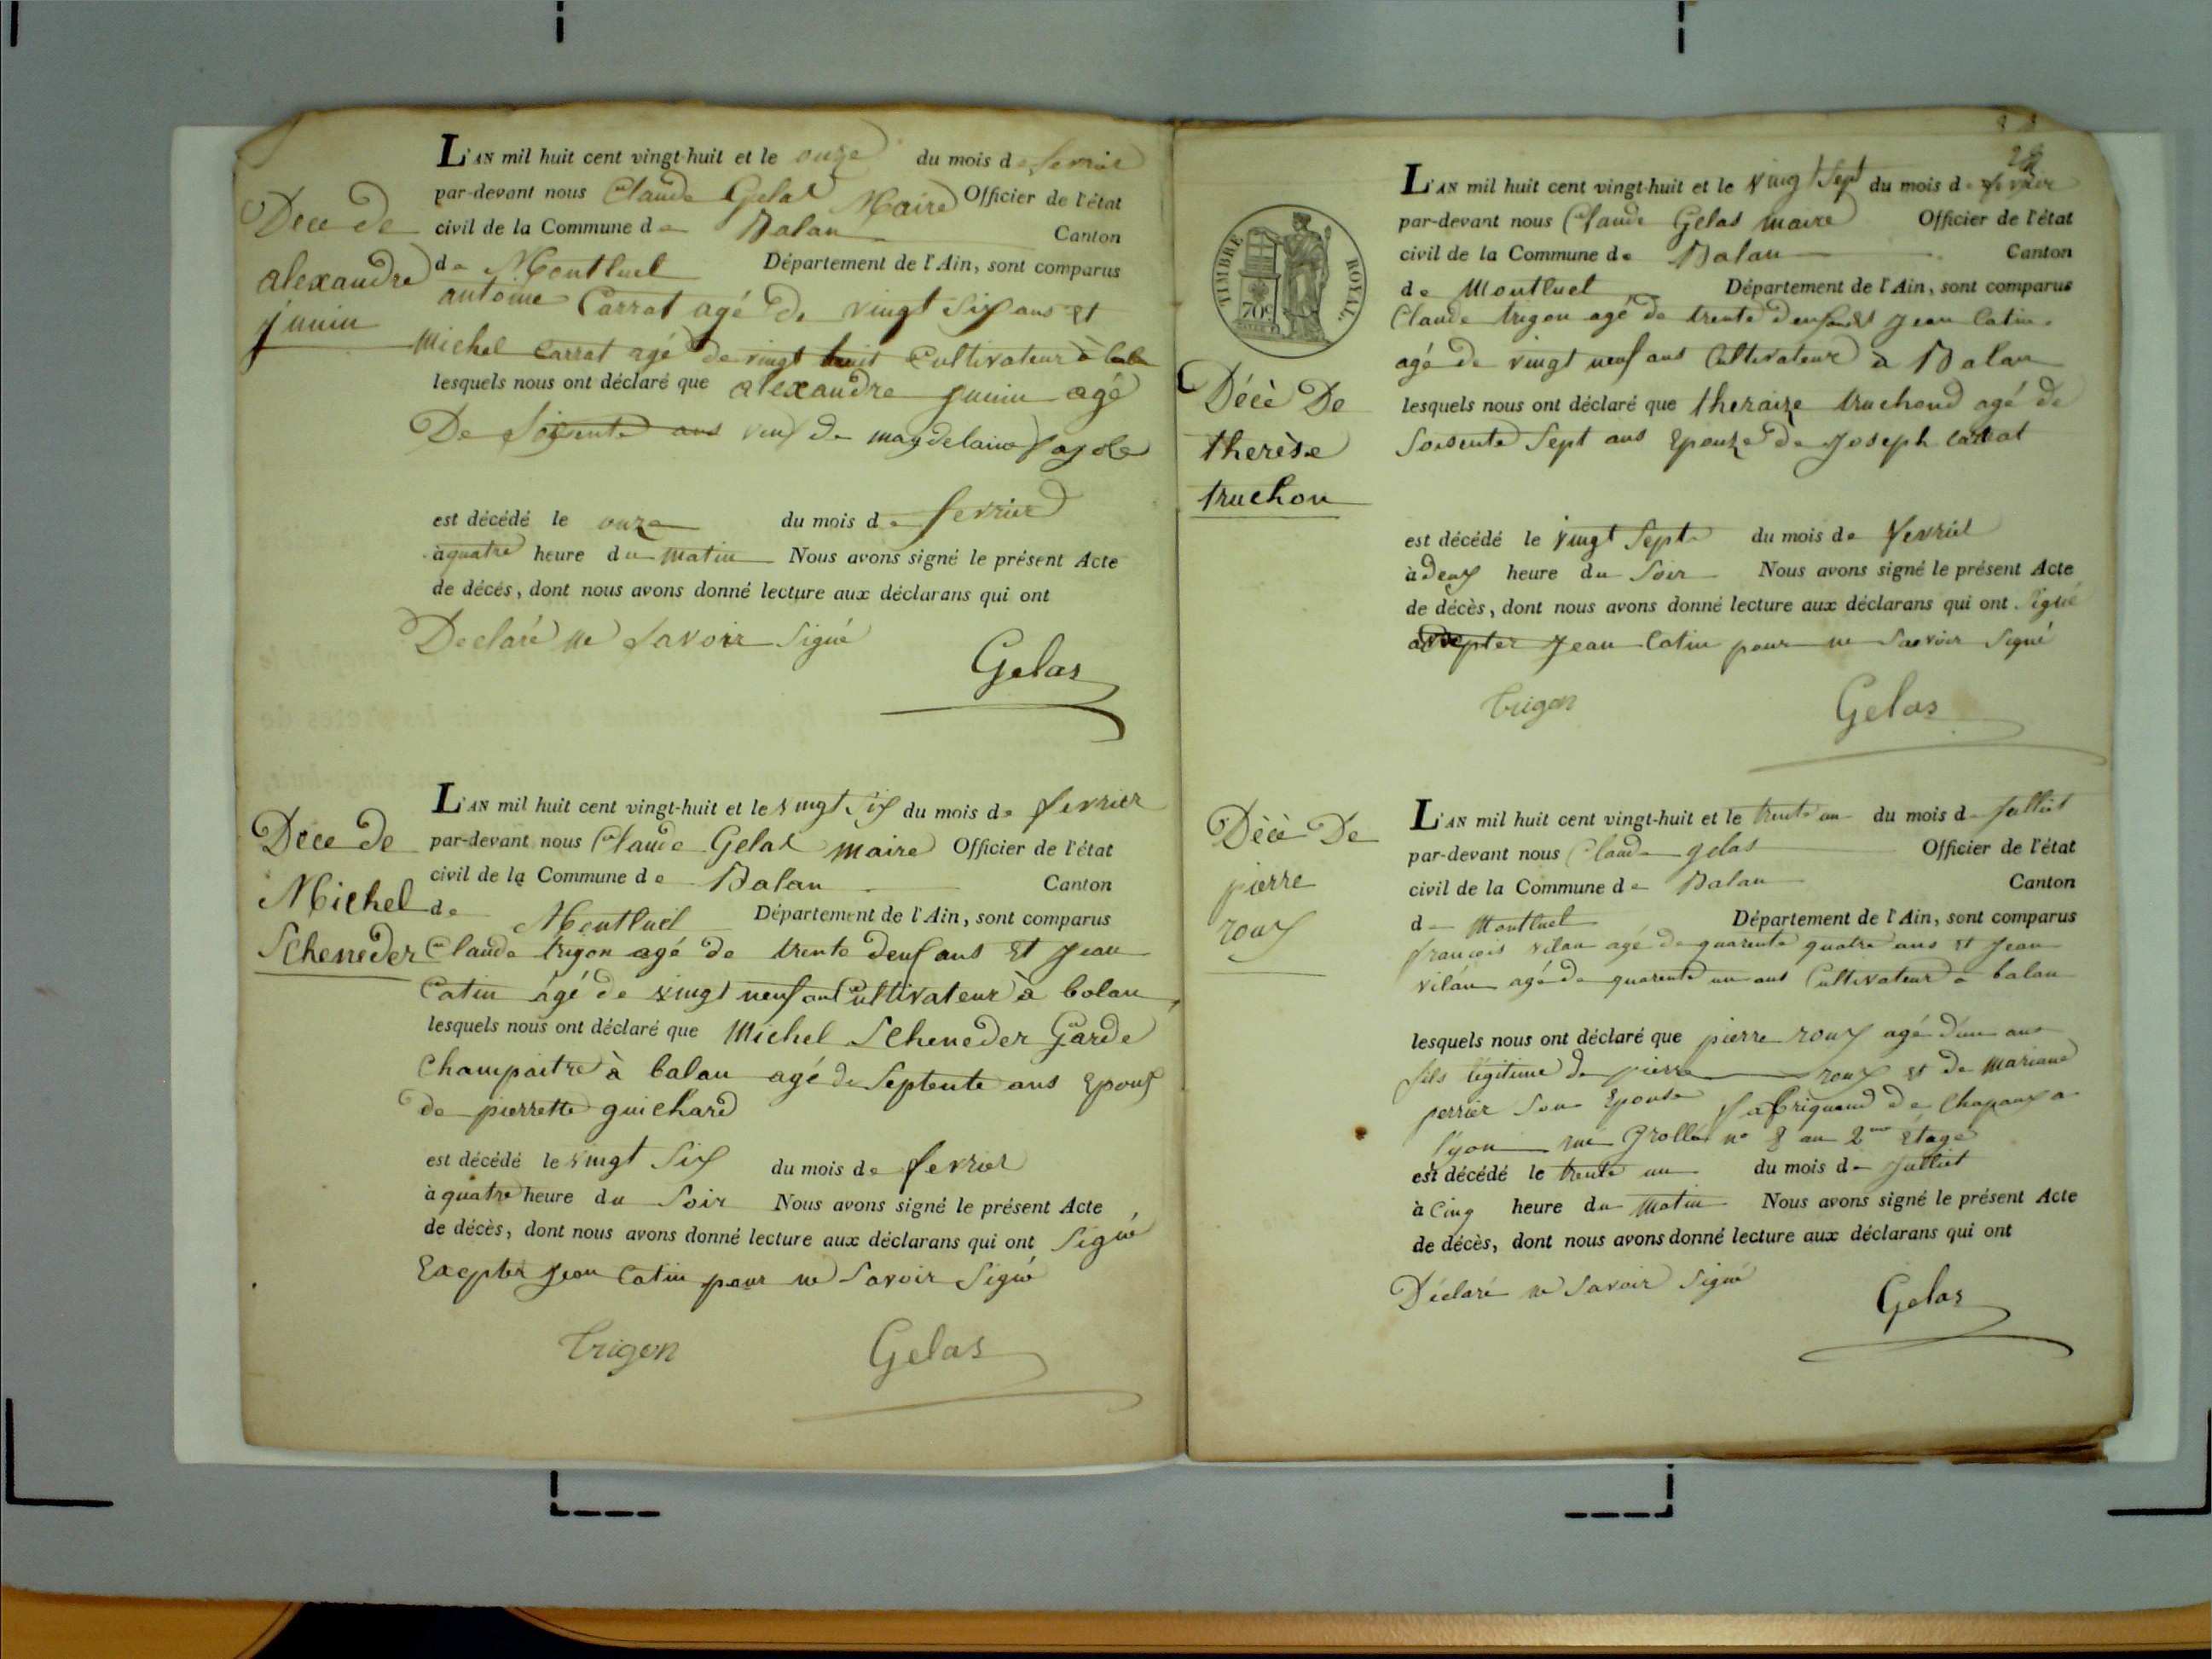 L'AN mil huit cent vingt-huit et le onze du mois de fevrier
par-devant nous Claude Gelas Maire Officier de l'état
civil de la Commune de Balan Canton
de Montluel Département de l'Ain, sont comparus
antoine Carrat agé de vingt six ans et
Michel Carrat agé de vingt huit Cultivateur à bala
lesquels nous ont déclaré que alexandre junin agé
De soisente ans veuf de magdelaine
est décédé le onze du mois de fevrier
à quatre heure du matin Nous avons signé le présent Acte
de décès, dont nous avons donné lecture aux déclarans qui ont
Declaré ne savoir signé
Gelas
Dece de
alexandre
junin
L'AN mil huit cent vingt-huit et le vingt six du mois de fevrier
par-devant nous Claude Gelas maire Officier de l'état
civil de la Commune de Balan Canton
de Montluel Département de l'Ain, sont comparus
Claude trigon agé de trente deux ans et jean
Catin agé de vingt neuf ans Cultivateur à balan
lesquels nous ont déclaré que Michel Scheneder Garde
Champaitre à balan agé de septente ans Epoux
de pierrette guichard
est décédé le vingt six du mois de fevrier
à quatre heure du soir Nous avons signé le présent Acte
de décès, dont nous avons donné lecture aux déclarans qui ont signé
Exepter jean Catin pour ne savoir signé
Trigon Gelas
Dece de
Michel
Scheneder
28
L'AN mil huit cent vingt-huit et le vingt sept du mois de fevrier
par-devant nous Claude Gelas maire Officier de l'état
civil de la Commune de Balan Canton
de Montluel Département de l'Ain, sont comparus
Claude trigon agé de trente deux ans et jean Catin
agé de vingt neuf ans Cultivateur à Balan
lesquels nous ont déclaré que theraize truchond agé de
soisente sept ans Epouze de joseph carrat
est décédé le vingt sept du mois de fevrier
à deux heure du soir Nous avons signé le présent Acte
de décès, dont nous avons donné lecture aux déclarans qui ont signé
jean Catin pour ne savoir signé
Trigon Gelas
TIMBRE ROYAL
70c
Décè De
therèse
truchon
L'AN mil huit cent vingt-huit et le trente un du mois de julliet
par-devant nous Claude gelas Officier de l'état
civil de la Commune de Balan Canton
de Montluel Département de l'Ain, sont comparus
françois vilan agé de quarente quatre ans et jean
vilan agé de quarente un ans Cultivateur à balan
lesquels nous ont déclaré que pierre roux agé d'un ans
fils légitime de pierre roux et de mariane
perrier son Epouse fabriquand de Chapaux a
lyon rue Grollée n° 8 au 2me Etage
est décédé le trente un du mois de julliet
à Cinq heure du matin Nous avons signé le présent Acte
de décès, dont nous avons donné lecture aux déclarans qui ont
Déclaré ne savoir signé
Gelas
Décè De
pierre
roux